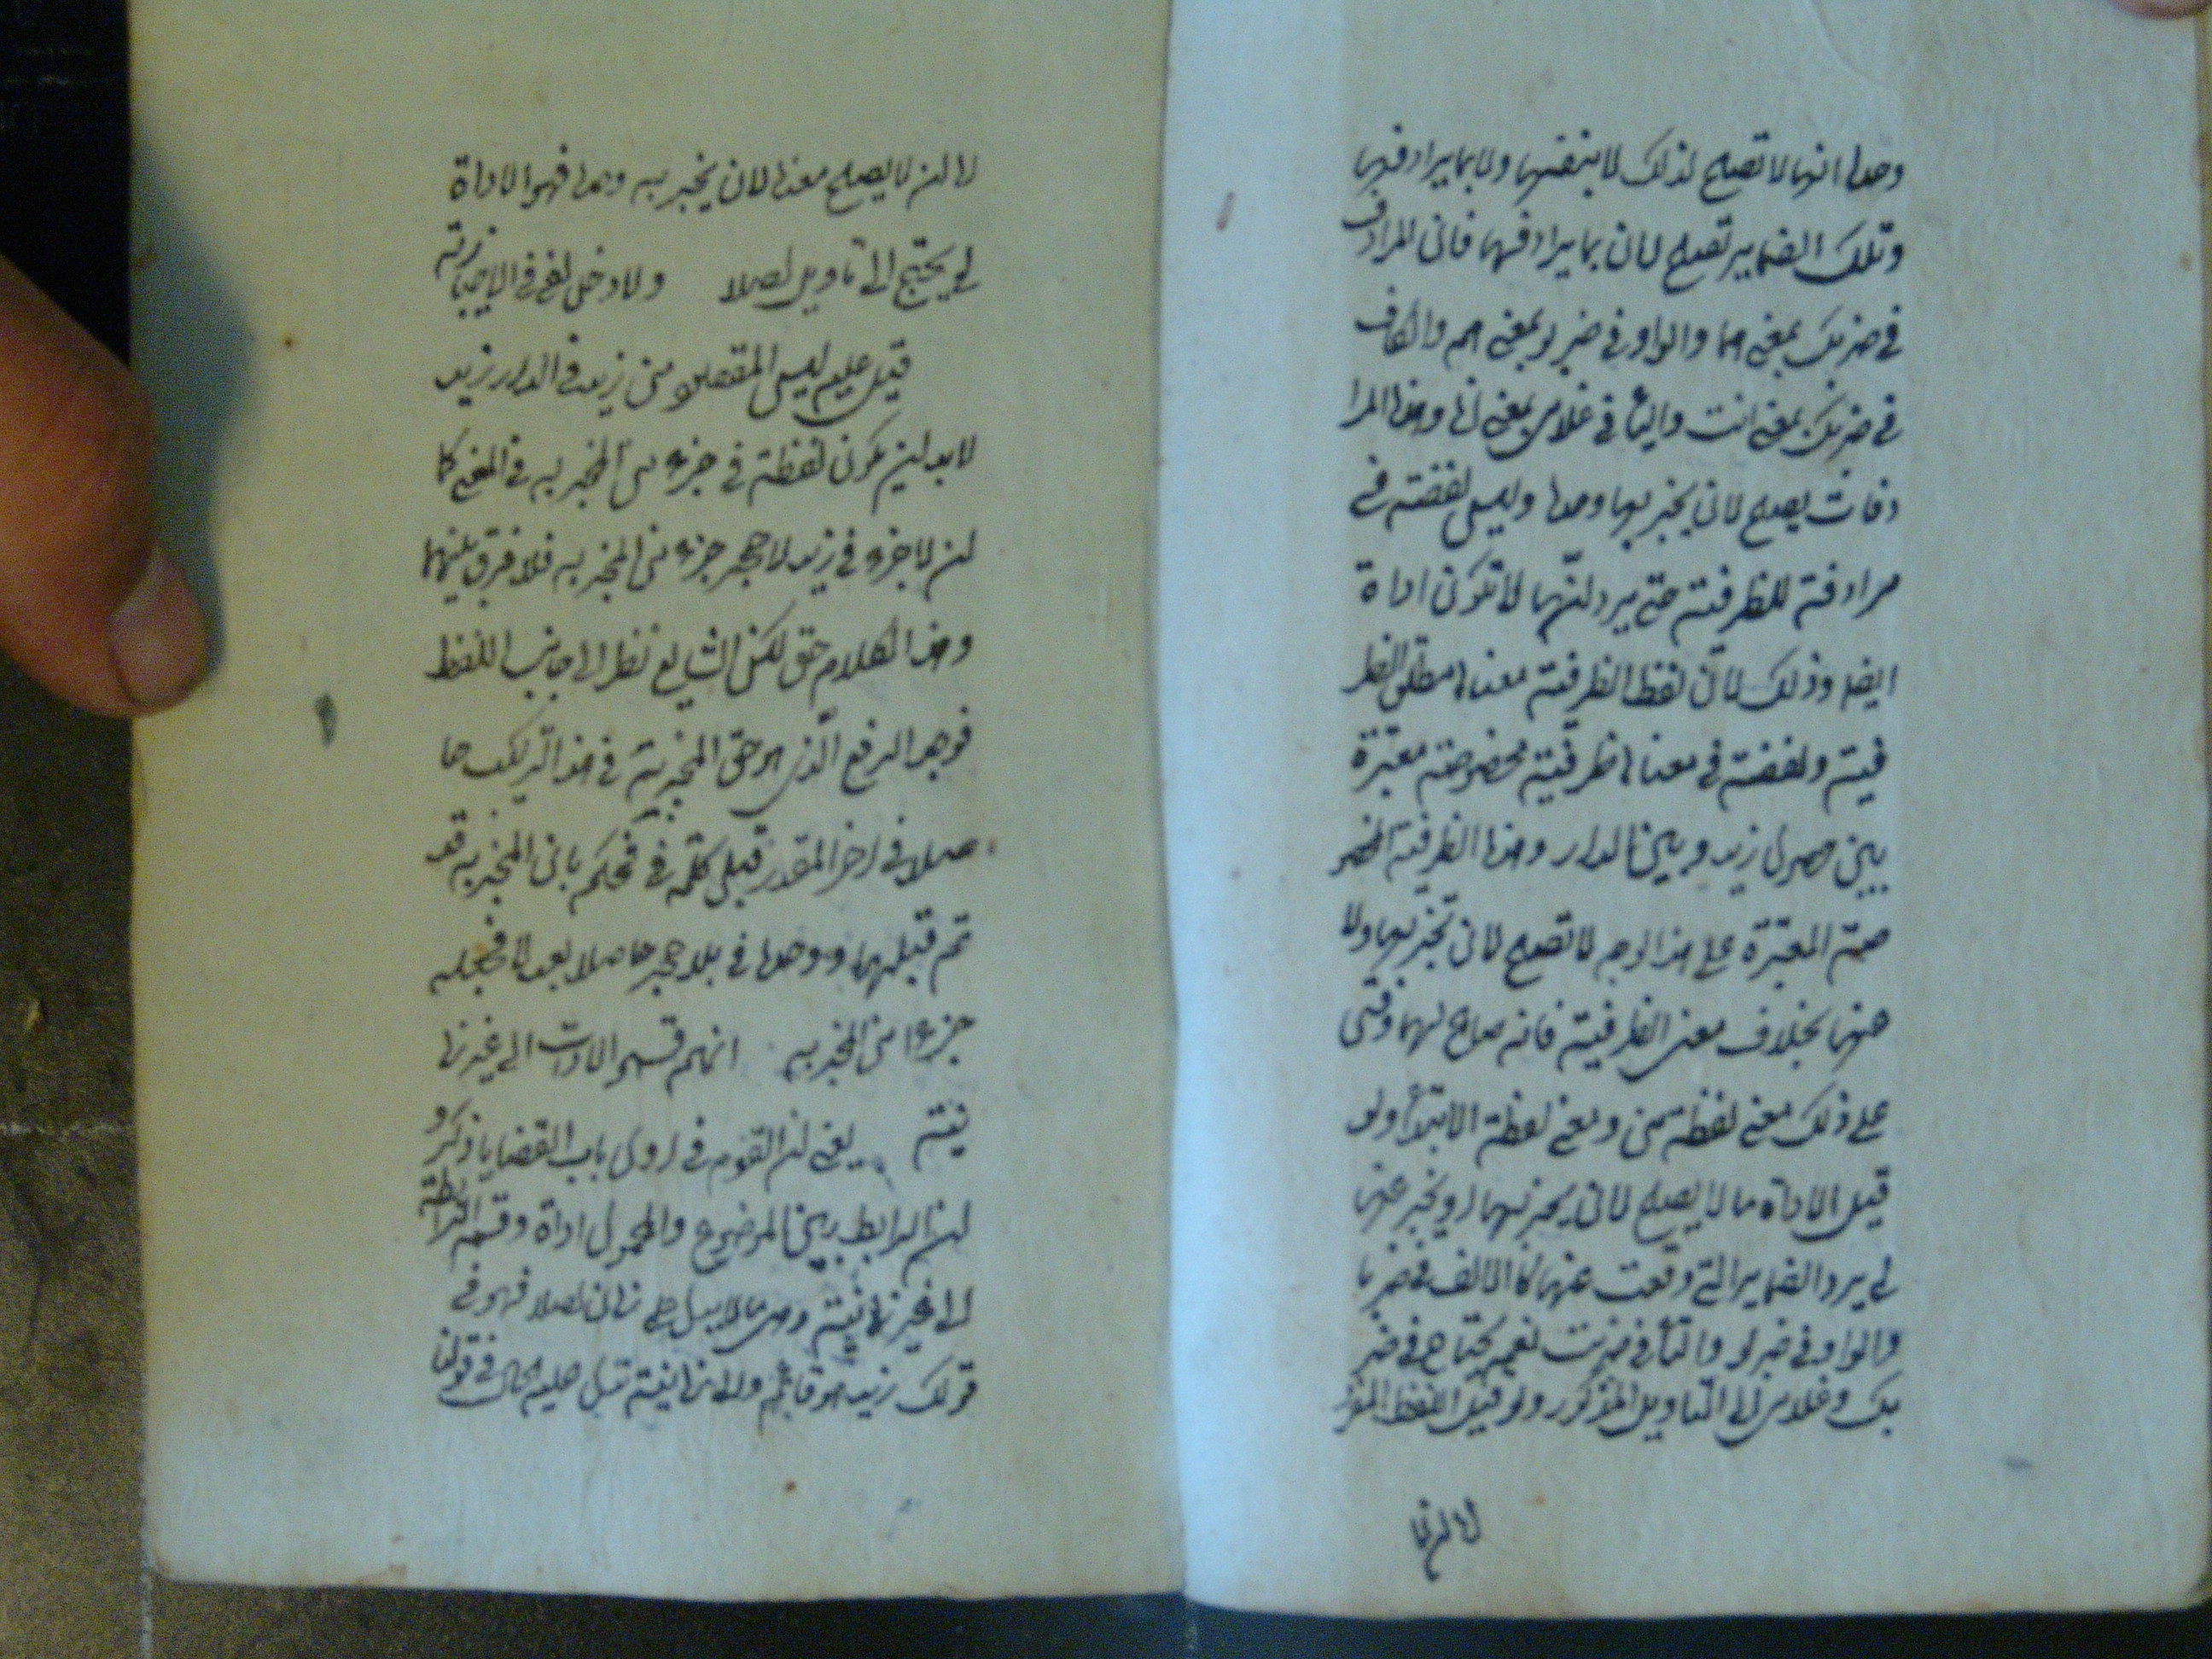 وحدها انها لا تصلح لذلك لا بنفسها ولا بما يرادفها
وتلك الضمایر تصلح لان بما يرادفها فان المرادف
في ضربك بمعنى هما والواو في ضربو بمعنى هم والكاف
في ضربك بمعنى انت والياء في غلامي بمعنى انا وهذا المرا
دفات يصلح لان يخبر بها وحدها وليس لفظة في
مرادفة للظرفية حتى يرد انها لا تكون اداة
ايضا وذلك لان لفظ الظرفية معناه مطلق الظر
فية ولفظة في معناها ظرفية مخصوصة معتبرة
بين حصول زيد وبين الدار وهذا الظرفية المخصو
صة المعتبرة على هذا الوجه لا تصلح لان تخبر بها ولا
عنها بخلاف معنى الظرفية فانه صالح لهما وقس
على ذلك معنى لفظة من ومعنى لفظة الابتداء ولو
قيل الاداة ما لا يصلح لان يخبر بها او يخبر عنها
لم يرد الضماير التي وقعت عنها كالالف في ضربا
والواو في ضربو والتاء في ضربت نعم يحتاج في ضر
بك وغلامي الى التاويل المذكور ولو قيل اللفظ المفر
لا ان لا يصلح معناه لان يخبر به وحده فهو الاداة
لم يحتج الى تاويل اصلا ولا دخل لفي في الاخبار به
قيل عليه ليس المقصود من زيد في الدار زيد
لابد ان يكون لفظة في جزء من المخبر به في المعنى كما
ان لا جزء في زيد لا حجر جزء من المخبر به فلا فرق بينهما
وهذا الكلام حق لكن الشايع نظر الى جانب اللفظ
فوجد الرفع الذي هو حق المخبرية في هذا التركيب حا
صلا في اخر المقدر قبل كلمة في فحكم بان المخبر به قد
تم قبلها ووجدها في بلا حجر حاصلا بعد لا فجعله
جزءا من المخبر به انهم قسموا الادوات الى غير زما
نية يعنى ان القوم في اول باب القضايا ذكروا
ان الرابط بين الموضوع والمحمول اداة وقسموا الرابطة
الى غير زمانية وهي ما لا يدل على زمان اصلا فهو في
قولك زيد هو قائم والى زمانية تدل عليه كان في قولنا